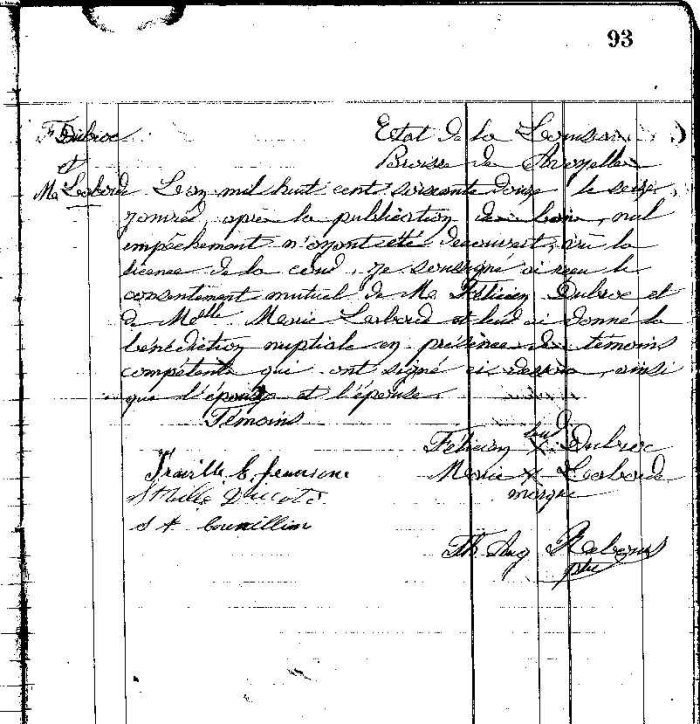 93
F. Dubroc
et
Me Laborde
Etat de la Louisiane
Paroisse de Avoyelles
L'an mil huit cent soixante douze le seize
janvier, après la publication de bans, nul
empêchement n'ayant été découvert, vu la
licence de la cour, je soussigné ai reçu le
consentement mutuel de Mr Félicien Dubroc et
de Melle Marie Laborde et leur ai donné la
bénédiction nuptiale en présence de témoins
compétents qui ont signé ci-dessous, ainsi
que l'époux et l'épouse.
Témoins
Félicien X Dubroc
Marie X Laborde
marque
Th Aug
ptre